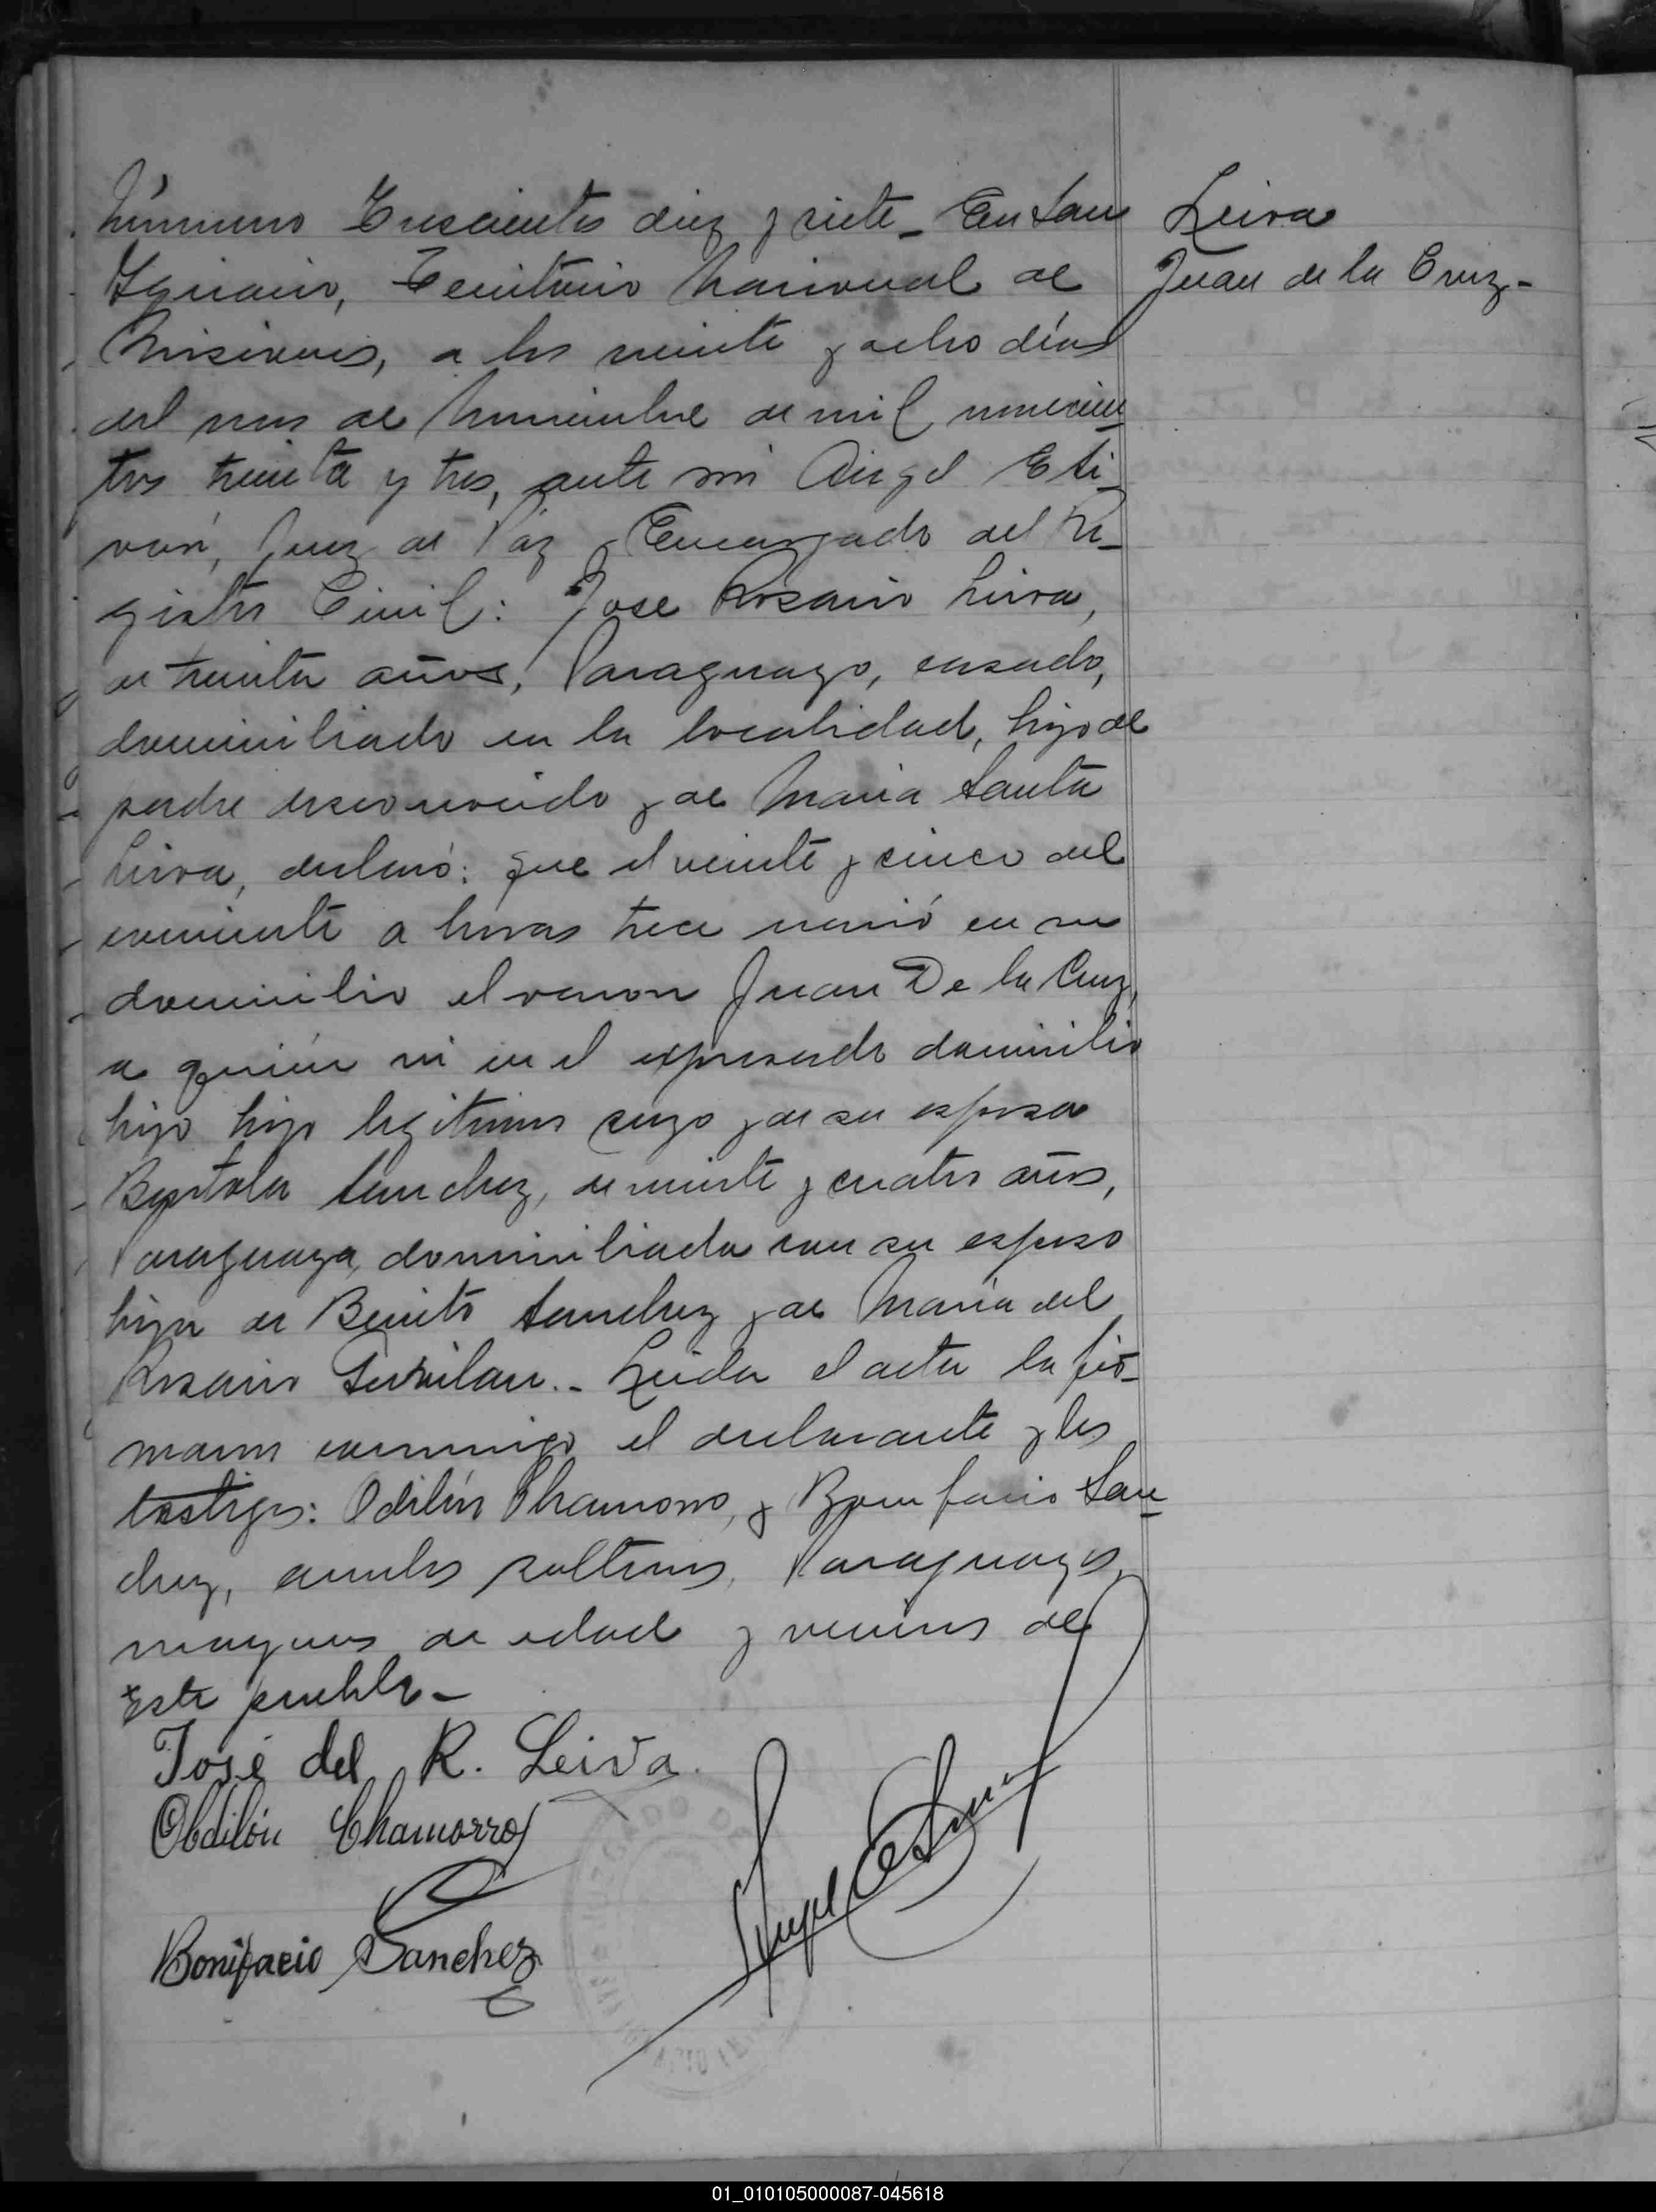 Número Trescientos diez y siete - En San
Ignacio, Territorio Nacional de
Misiones, a los veinte y ocho días
del mes de Noviembre de mil novecien-
tos treinta y tres, ante mi Angel Esti-
, Juez de Páz y Encargado del Re-
gistro Civil: Jose Rosario Leiva,
de treinta años, Paraguayo, casado,
domiciliado en la localidad, hijo de
padre desconocido y de Maria Santa
Leiva, declaró: que el veinte y cinco del
corriente a horas trece nació en su
domicilio el varon Juan De la Cruz,
a quién vi en el expresado domicilio
hijo hijo legitimo suyo y de su esposa
Sanchez, de veinte y cuatro años,
Paraguaya, domiciliada con su esposo
hija de Benito Sanchez y de Maria del
Rosario . - Leida el acta la fir-
maron conmigo el declarante y los
testigos: Odilón Chamorro, y Bonifacio San-
chez, ambos solteros, Paraguayos,
mayores de edad y vecinos de
Este pueblo -
José del R. Leiva.
Obdilón Chamorro
Bonifacio Sanchez
Angel
Leiva
Juan de la Cruz -
JUZGADO DE
01_010105000087-045618